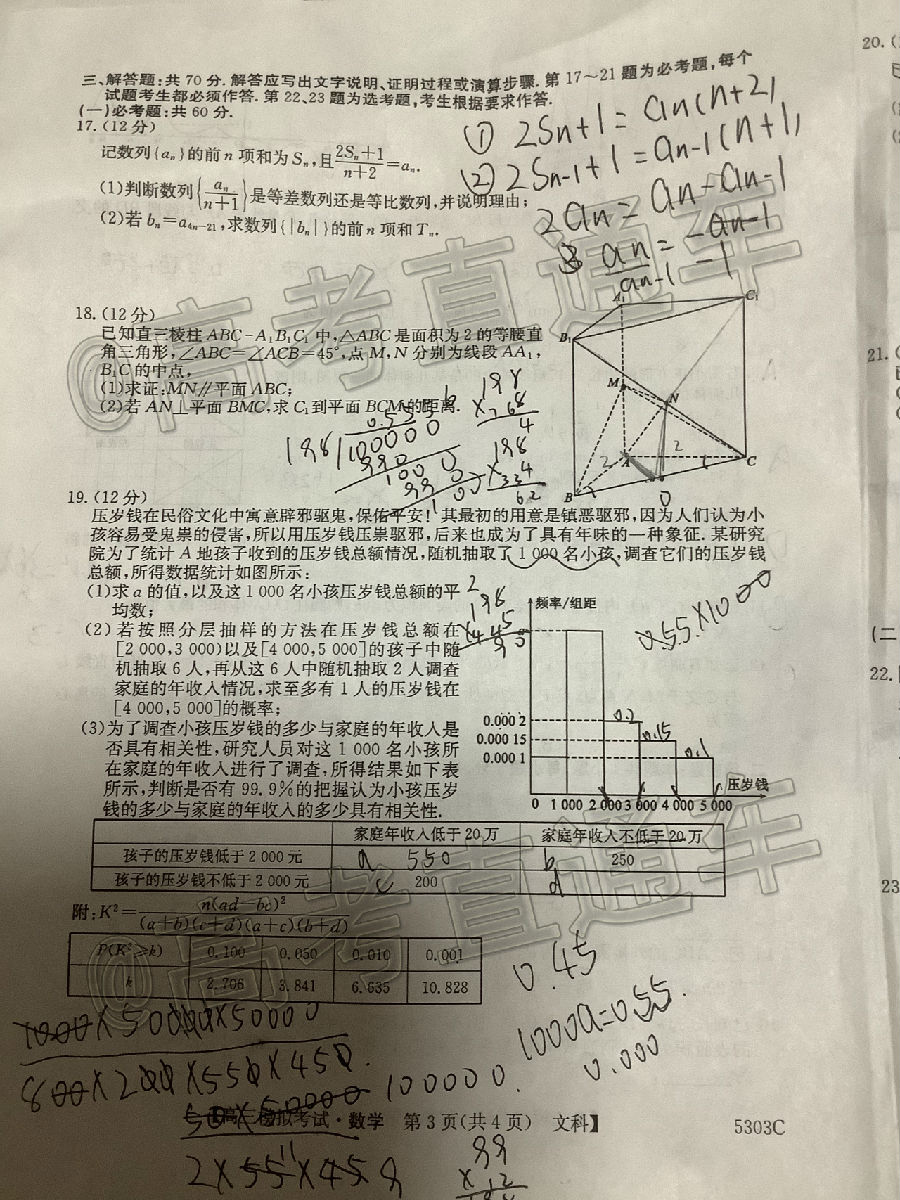 三、解答题:共 70 分. 解答应写出文字说明、证明过程或演算步骤. 第 17~21 题为必考题,每个
试题考生都必须作答. 第 22、23 题为选考题,考生根据要求作答.
(一)必考题:共 60 分.
17.(12 分)
记数列{aₙ}的前 n 项和为 Sₙ,且(2Sₙ+1)/(n+2)=aₙ.
(1)判断数列{aₙ/(n+1)}是等差数列还是等比数列,并说明理由;
(2)若 bₙ=a₄ₙ₋₂₁,求数列{|bₙ|}的前 n 项和 Tₙ.
① 2Sn+1=an(n+2)
② 2Sn-1+1=an-1(n+1)
2an=an-an-1
an/an-1=-an-1/-1
18.(12 分)
已知直三棱柱 ABC-A₁B₁C₁ 中,△ABC 是面积为 2 的等腰直
角三角形,∠ABC=∠ACB=45°,点 M,N 分别为线段 AA₁,
B₁C 的中点,
(1)求证:MN∥平面 ABC;
(2)若 AN⊥平面 BMC,求 C₁到平面 BCM 的距离.
A₁
C₁
B₁
M
N
A
C
B
D
2
2
19.(12 分)
压岁钱在民俗文化中寓意辟邪驱鬼,保佑平安!其最初的用意是镇恶驱邪,因为人们认为小
孩容易受鬼祟的侵害,所以用压岁钱压祟驱邪,后来也成为了具有年味的一种象征. 某研究
院为了统计 A 地孩子收到的压岁钱总额情况,随机抽取了 1 000 名小孩,调查它们的压岁钱
总额,所得数据统计如图所示:
(1)求 a 的值,以及这 1 000 名小孩压岁钱总额的平
均数;
(2)若按照分层抽样的方法在压岁钱总额在
[2 000,3 000)以及[4 000,5 000]的孩子中随
机抽取 6 人,再从这 6 人中随机抽取 2 人调查
家庭的年收入情况,求至多有 1 人的压岁钱在
[4 000,5 000]的概率;
(3)为了调查小孩压岁钱的多少与家庭的年收入是
否具有相关性,研究人员对这 1 000 名小孩所
在家庭的年收入进行了调查,所得结果如下表
所示,判断是否有 99.9%的把握认为小孩压岁
钱的多少与家庭的年收入的多少具有相关性.
频率/组距
0.55×1000
0.000 2
0.000 15
0.000 1
0.2
0.15
0.1
0 1 000 2 000 3 000 4 000 5 000
压岁钱
家庭年收入低于 20 万 家庭年收入不低于 20 万
孩子的压岁钱低于 2 000 元 a 550 b 250
孩子的压岁钱不低于 2 000 元 c 200 d
附:K²=n(ad-bc)²/((a+b)(c+d)(a+c)(b+d))
P(K²≥k) 0.100 0.050 0.010 0.001
k 2.706 3.841 6.635 10.828
0.45
1000a=0.55.
0.000
800×200×550×450
100000.
高三模拟考试·数学 第 3 页(共 4 页) 文科】
5303C
20.
21.
(二
22.
23
@高考直通车
@高考直通车